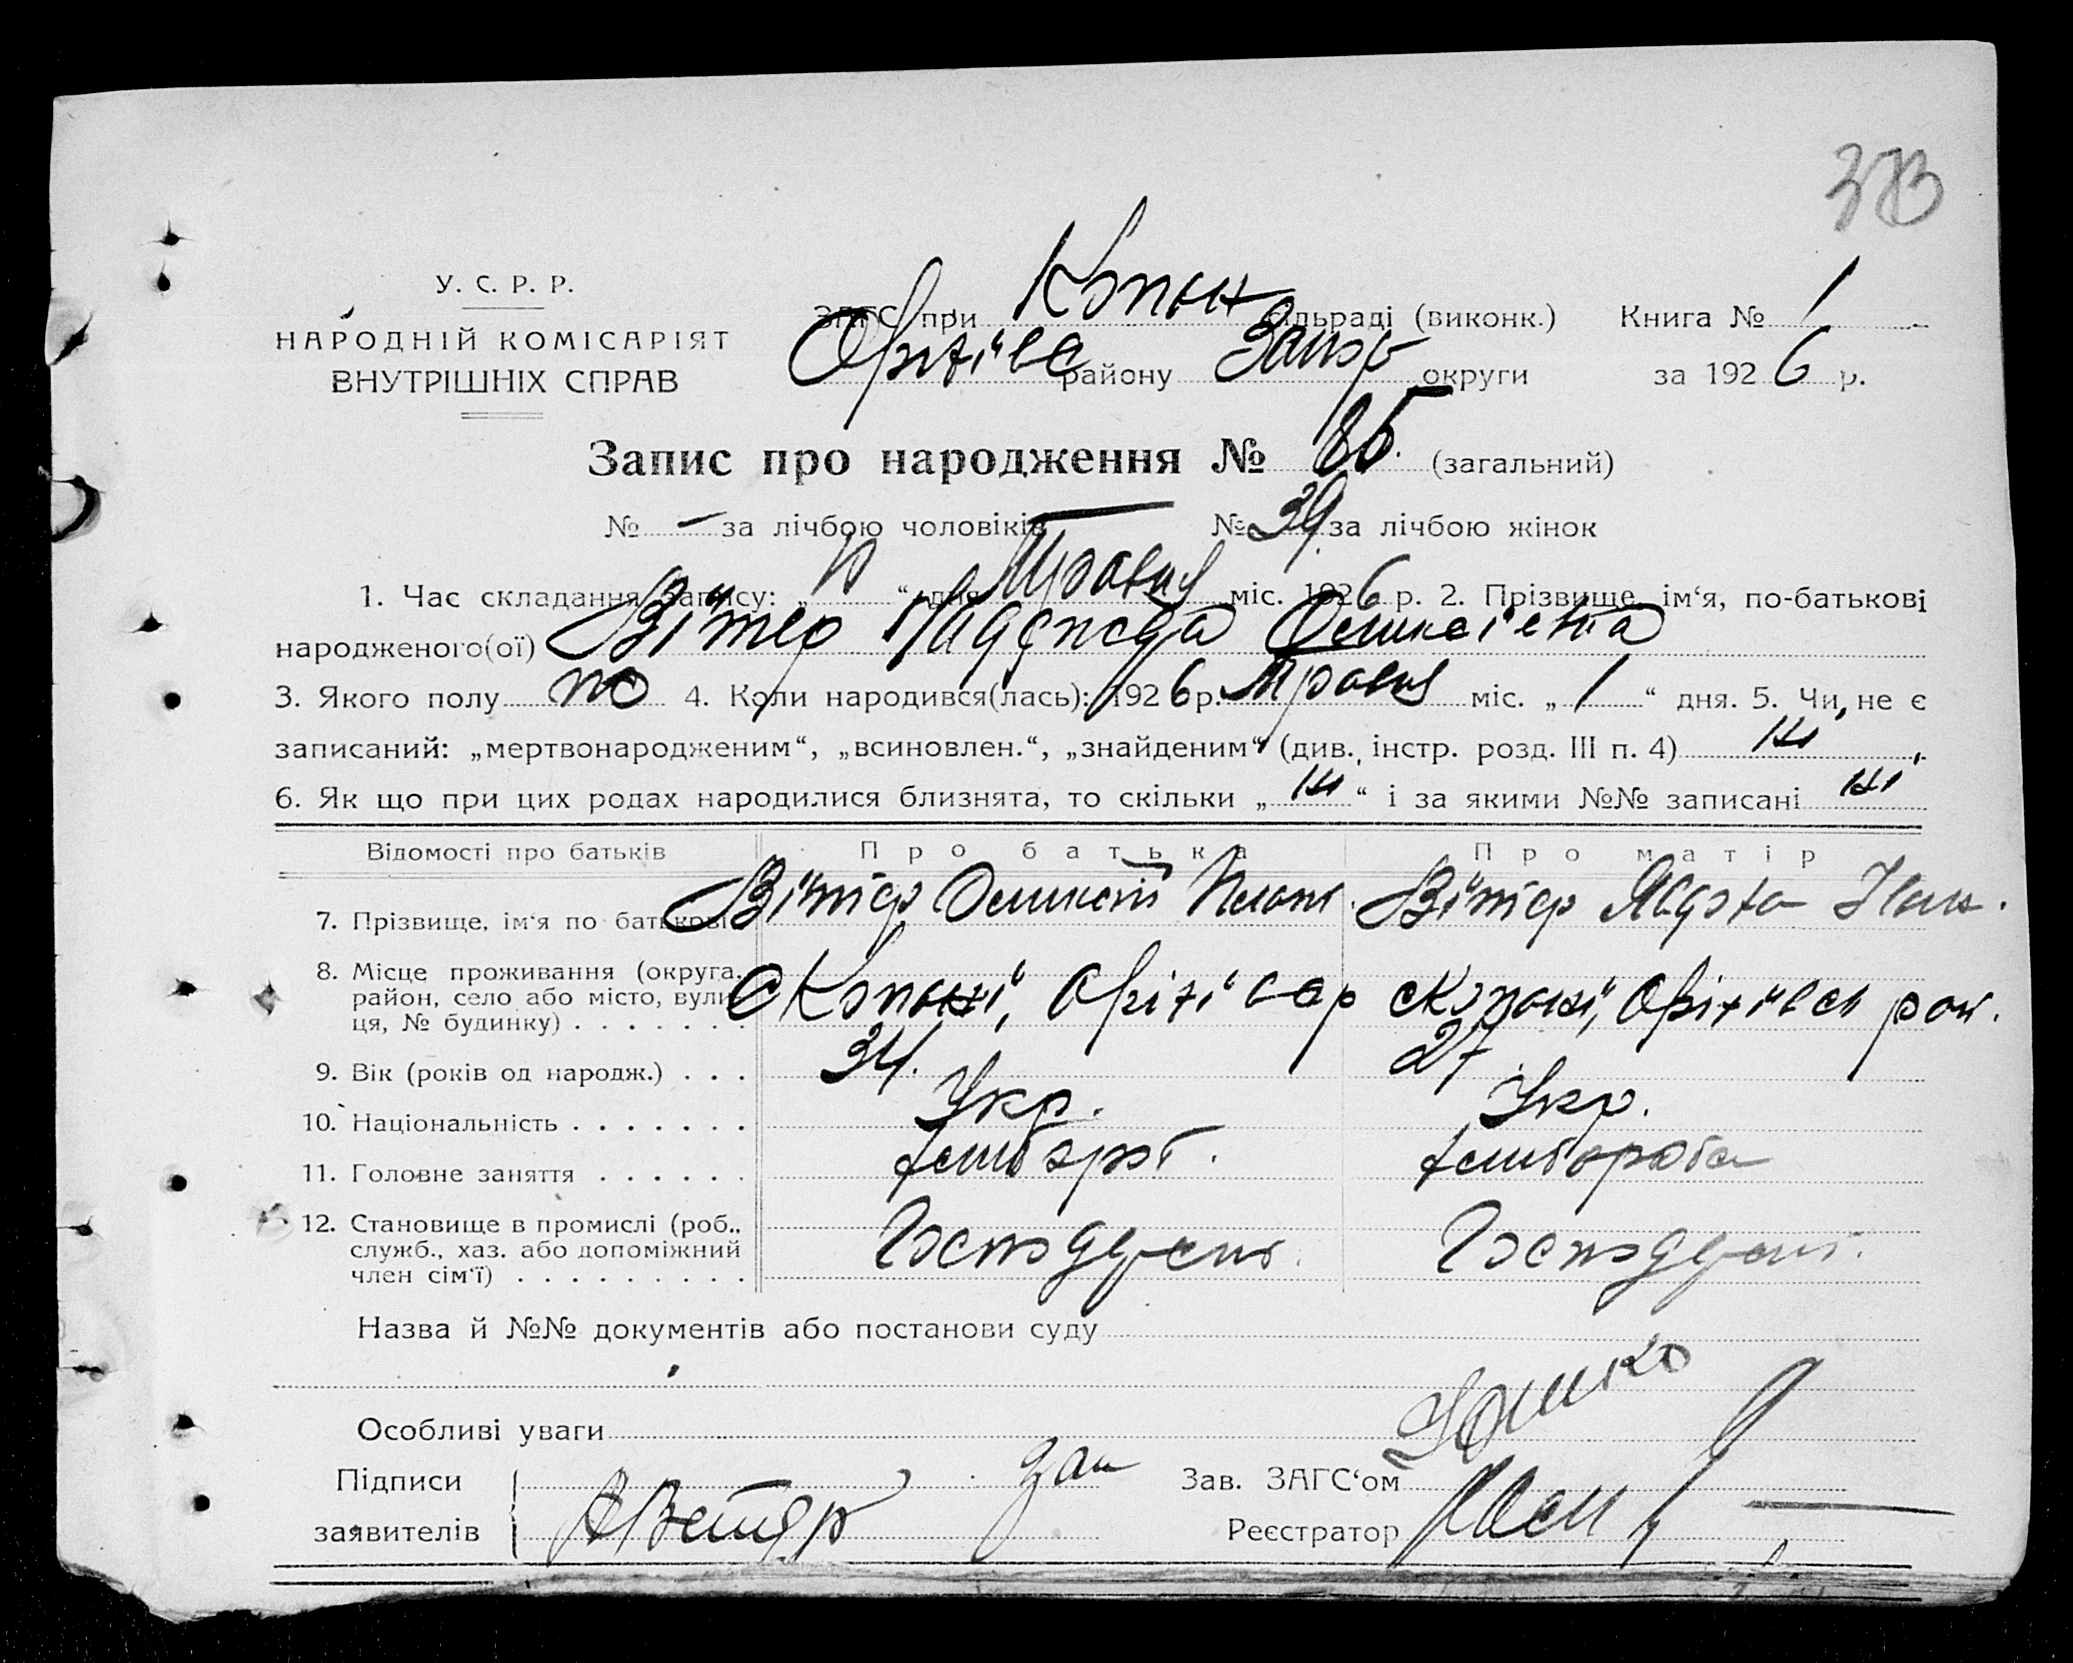 373
У. С. Р. Р.
НАРОДНІЙ КОМІСАРІЯТ
ВНУТРІШНІХ СПРАВ
ЗАГС при Копан сільраді (виконк.) Книга № 1
Оріхів району Запор округи за 1926 р.
Запис про народження № 85 (загальний)
№ — за лічбою чоловіків № 39 за лічбою жінок
1. Час складання запису: „ “ дня Травня міс. 1926 р. 2. Прізвище, ім‘я, по-батькові
народженого(ої) Вітер Надежда
3. Якого полу жо 4. Коли народився(лась): 1926 р. Травня міс. „ 1 “ дня. 5. Чи не є
записаний: „мертвонародженим“, „всиновлен.“, „знайденим“ (див. інстр. розд. III п. 4) ні
6. Як що при цих родах народилися близнята, то скільки „ ні “ і за якими №№ записані ні
Відомості про батьків Про батька Про матір
7. Прізвище, ім‘я по батькові Вітер Вітер Явдоха Іван.
8. Місце проживання (округа, район, село або місто, вулиця, № будинку) . . . . . . . с Копані, Оріхів с Копані, Оріхівсь рай.
9. Вік (років од народж.) . . . 34. 27
10. Національність . . . . . . . Укр. Укр.
11. Головне заняття . . . . . . хлібороб. хлібороба
12. Становище в промислі (роб., служб., хаз. або допоміжний член сім‘ї) . . . . . . . . . Господар Господар
Назва й №№ документів або постанови суду
Особливі уваги
Підписи Зав. ЗАГС‘ом
заявителів Реєстратор